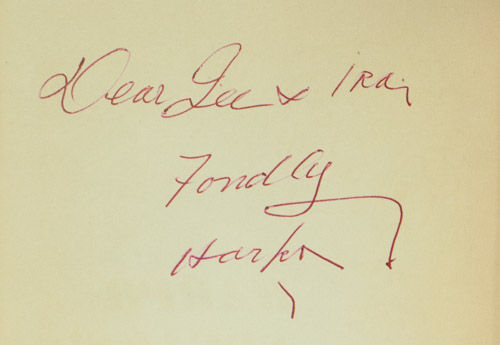 Dear Lee & Ira,
Fondly
Harpo